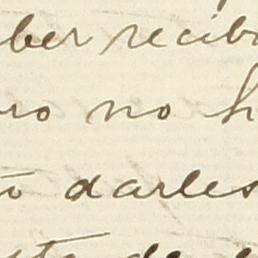 ber recib
ro no h
to darles